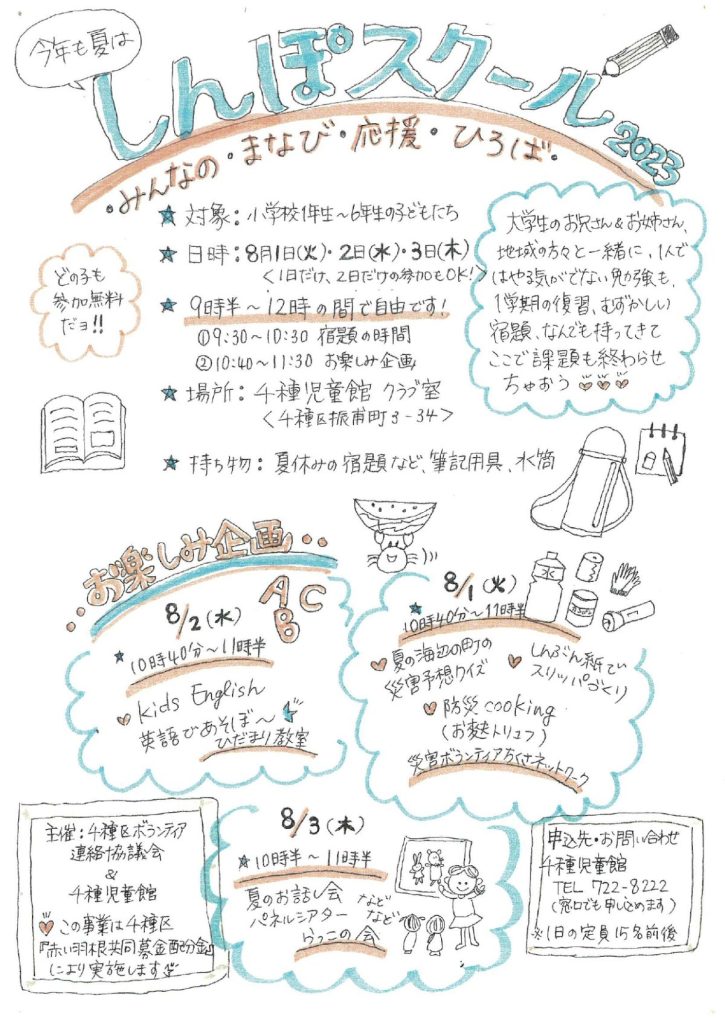 今年も夏は
しんぽスクール
2023
・みんなの・まなび・応援・ひろば・
★対象：小学校1年生～6年生の子どもたち
★日時：8月1日(火)・2日(水)・3日(木)
＜1日だけ、2日だけの参加もOK!＞
★9時半～12時の間で自由です!
①9:30～10:30 宿題の時間
②10:40～11:30 お楽しみ企画
★場所：千種児童館 クラブ室
＜千種区振甫町3-34＞
★持ち物：夏休みの宿題など、筆記用具、水筒
どの子も
参加無料
だヨ!!
大学生のお兄さん&お姉さん、
地域の方々と一緒に、1人で
はやる気がでない勉強も、
1学期の復習、むずかしい
宿題、なんでも持ってきて
ここで課題も終わらせ
ちゃおう
お楽しみ企画
ABC
水
8/1(火)
★10時40分～11時半
夏の海辺の町の
災害予想クイズ
しんぶん紙で
スリッパづくり
防災cooking
(お麩トリュフ)
災害ボランティアちくさネットワーク
8/2(水)
★10時40分～11時半
Kids English
英語であそぼ～
ひだまり教室
8/3(木)
★10時半～11時半
夏のお話し会
パネルシアター
などなど
らっこの会
主催：千種区ボランティア
連絡協議会
&
千種児童館
この事業は千種区
『赤い羽根共同募金配分金』
により実施します
申込先・お問い合わせ
千種児童館
TEL 722-8222
(窓口でも申し込めます)
※1日の定員15名前後